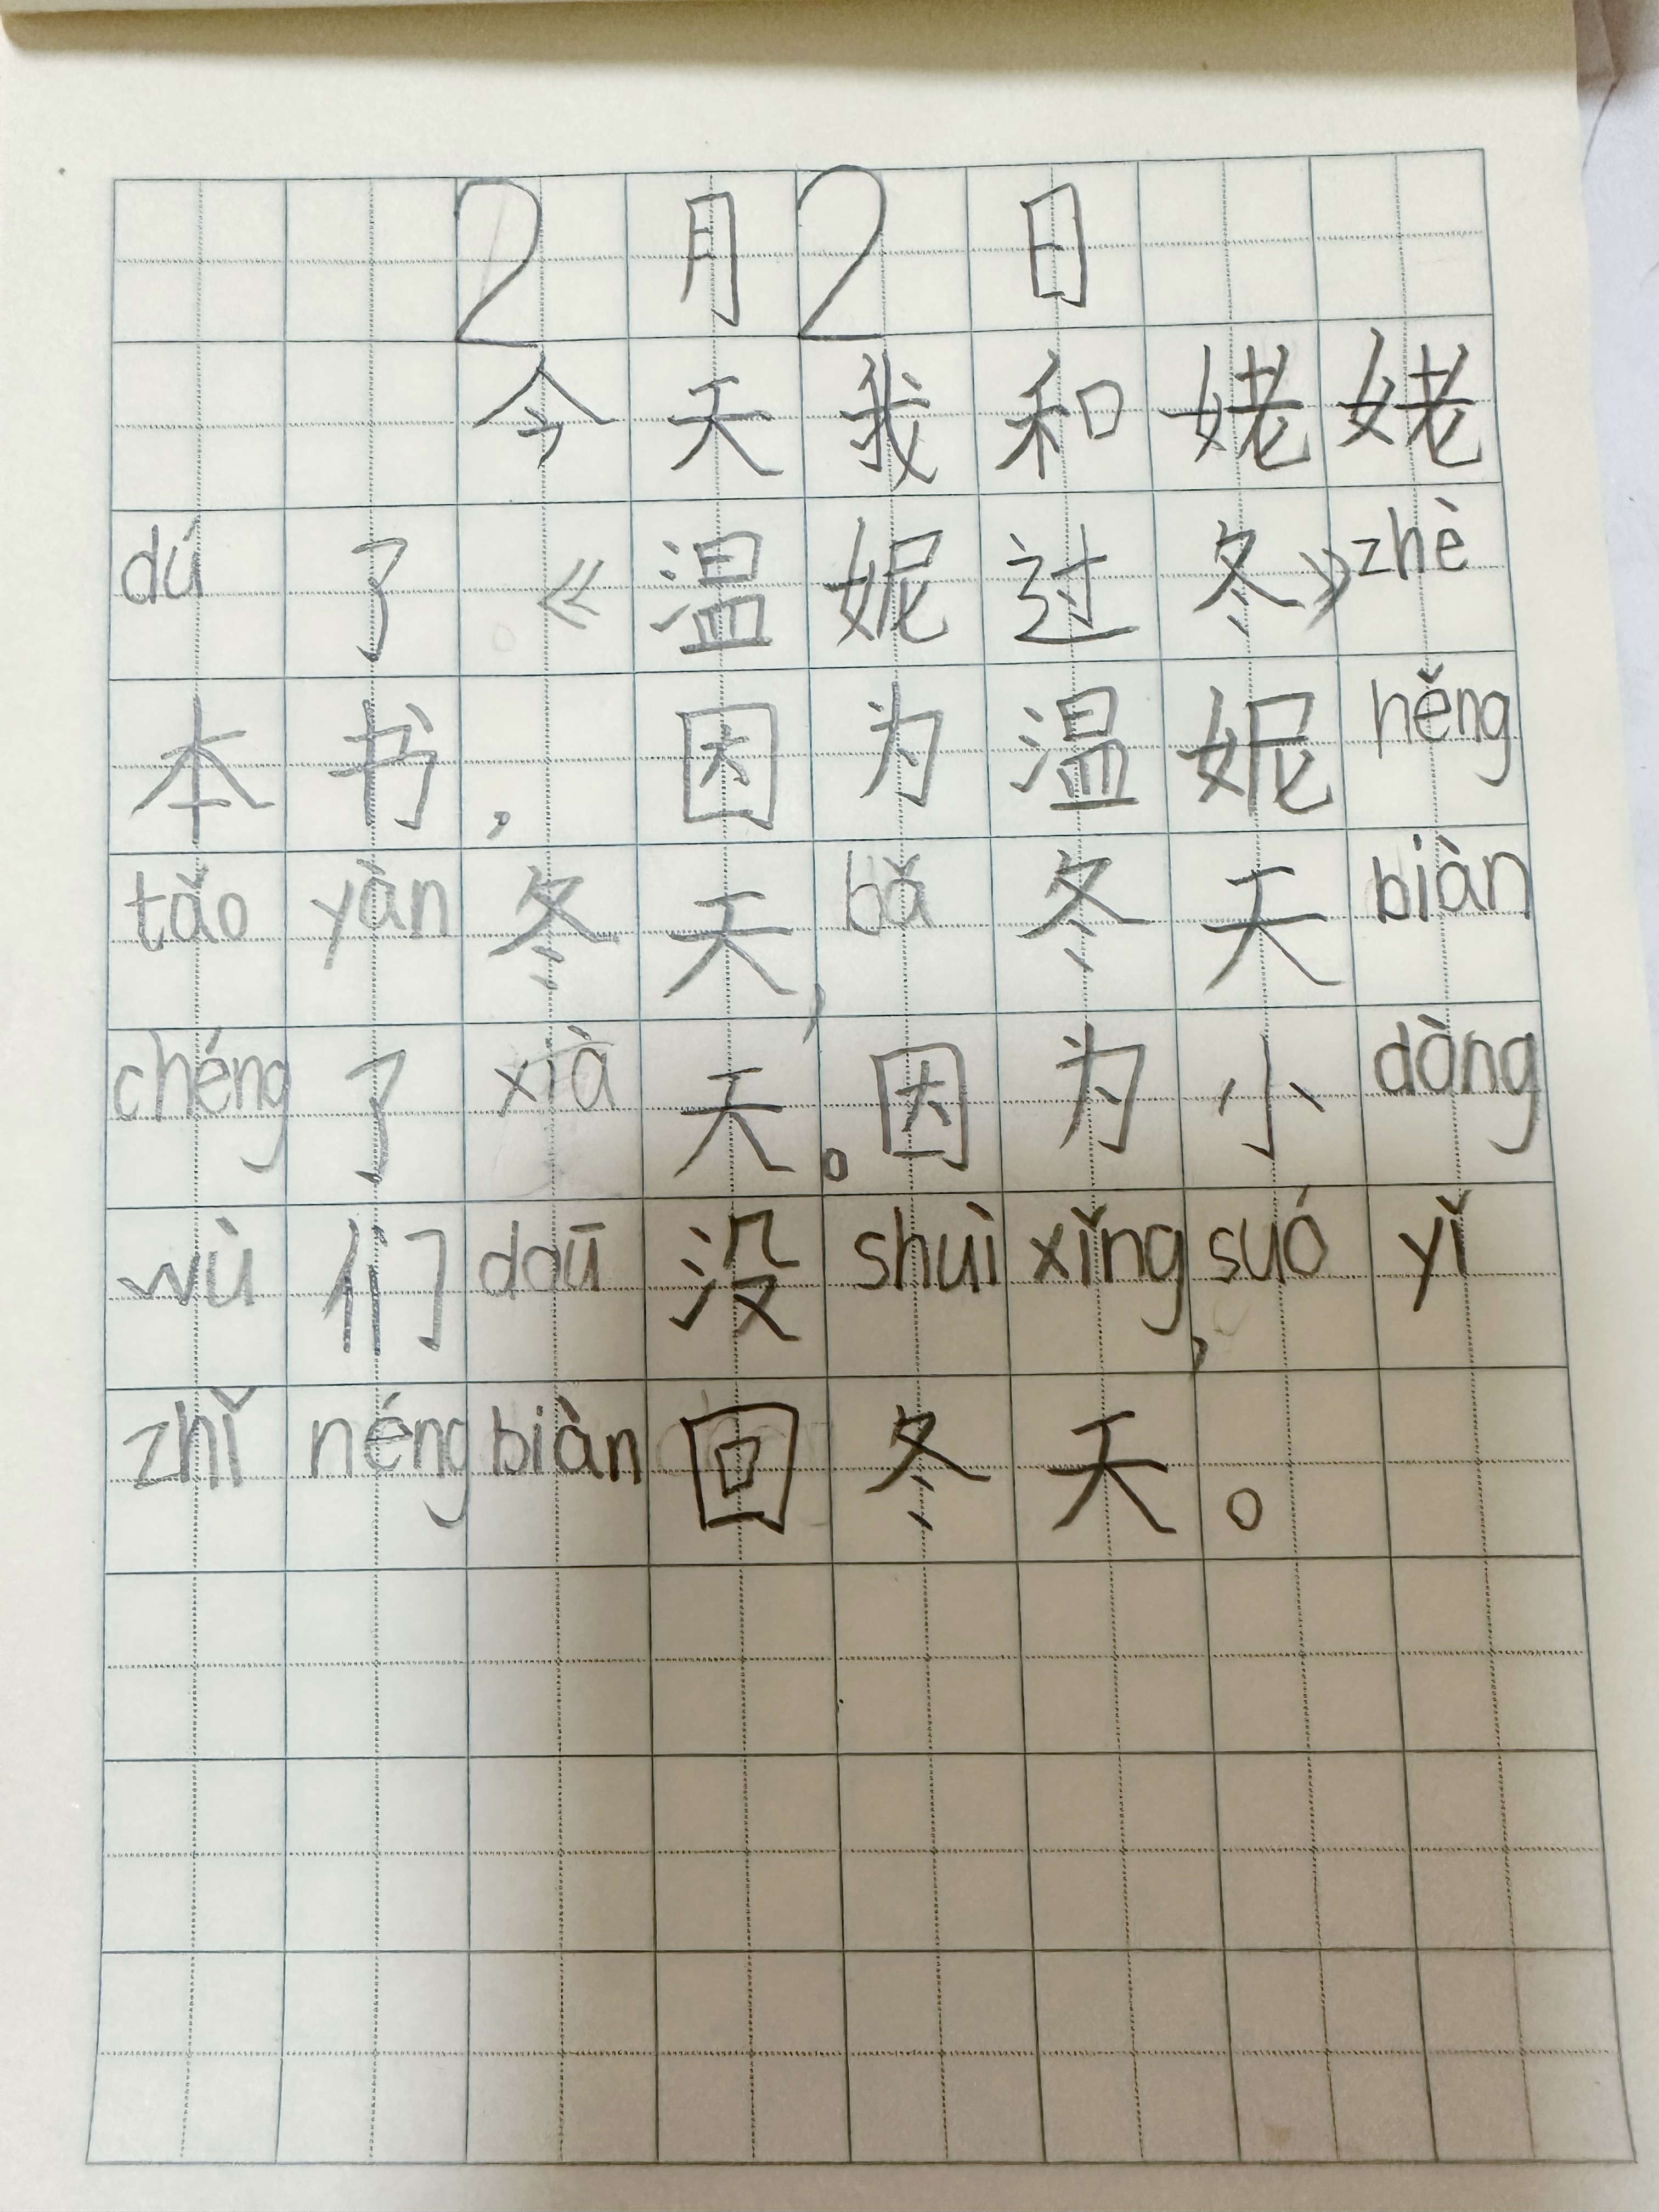 2月2日
今天我和姥姥
dú了《温妮过冬》zhè
本书，因为温妮hěng
tǎo yàn冬天，bǎ冬天biàn
chéng了xià天。因为小dòng
wù们daū没shuì xǐng，suó yǐ
zhǐ néng biàn回冬天。